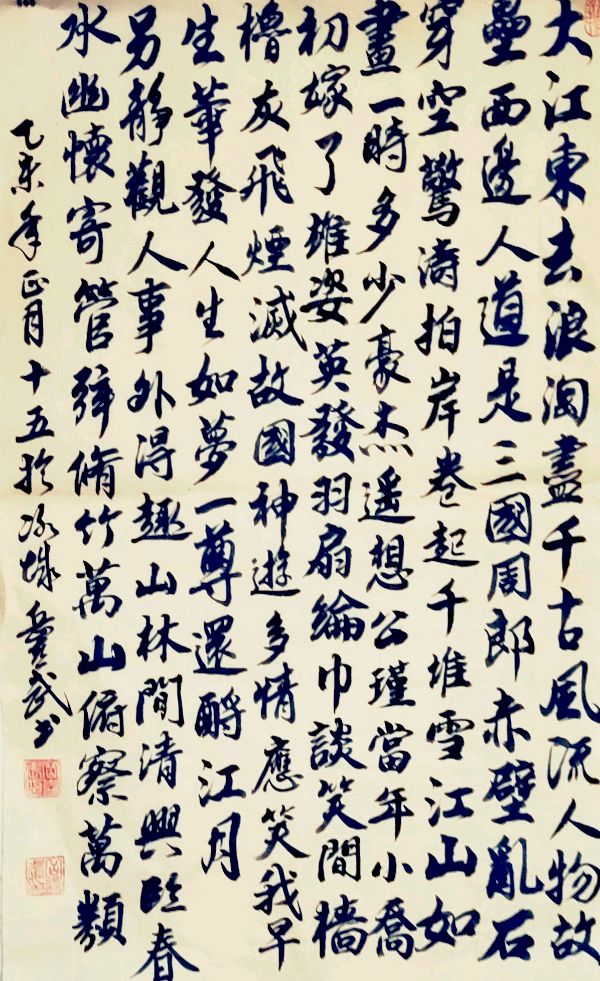 大江東去浪淘盡千古風流人物故
壘西邊人道是三國周郎赤壁亂石
穿空驚濤拍岸卷起千堆雪江山如
畫一時多少豪杰遥想公瑾當年小喬
初嫁了雄姿英發羽扇綸巾談笑間檣
櫓灰飛煙滅故國神遊多情應笑我早
生華發人生如夢一尊還酹江月
另静觀人事外得趣山林間清興臨春
水幽懷寄管弦脩竹萬山俯察萬類
乙未年正月十五於冰城武书